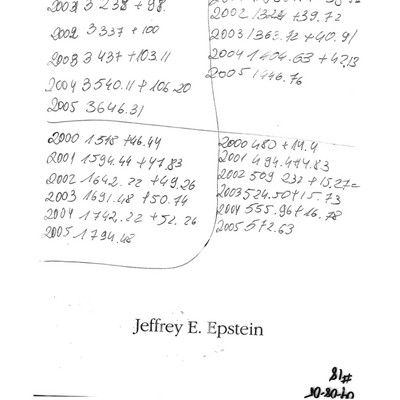 2001 3238 + 98
2002 3337 + 100
2003 3437 + 103.11
2004 3540.11 + 106.20
2005 3646.31
+39.72
2003 1363.72 + 40.91
2004 1404.63 + 42.13
2005 1446.76
2000 1518 + 46.44
2001 1594.44 + 47.83
2002 1642.22 + 49.26
2003 1691.48 + 50.74
2004 1742.22 + 52.26
2005 1794.48
2000 480 + 14.4
2001 494.4 + 14.83
2002 509.232 + 15.27=
2003 524.50 + 15.73
2004 555.96 + 16.78
2005 572.63
Jeffrey E. Epstein
#18